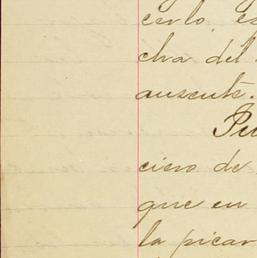 cerlo, es
cha del
ausente.
Pu
ciero de
que en
la picar